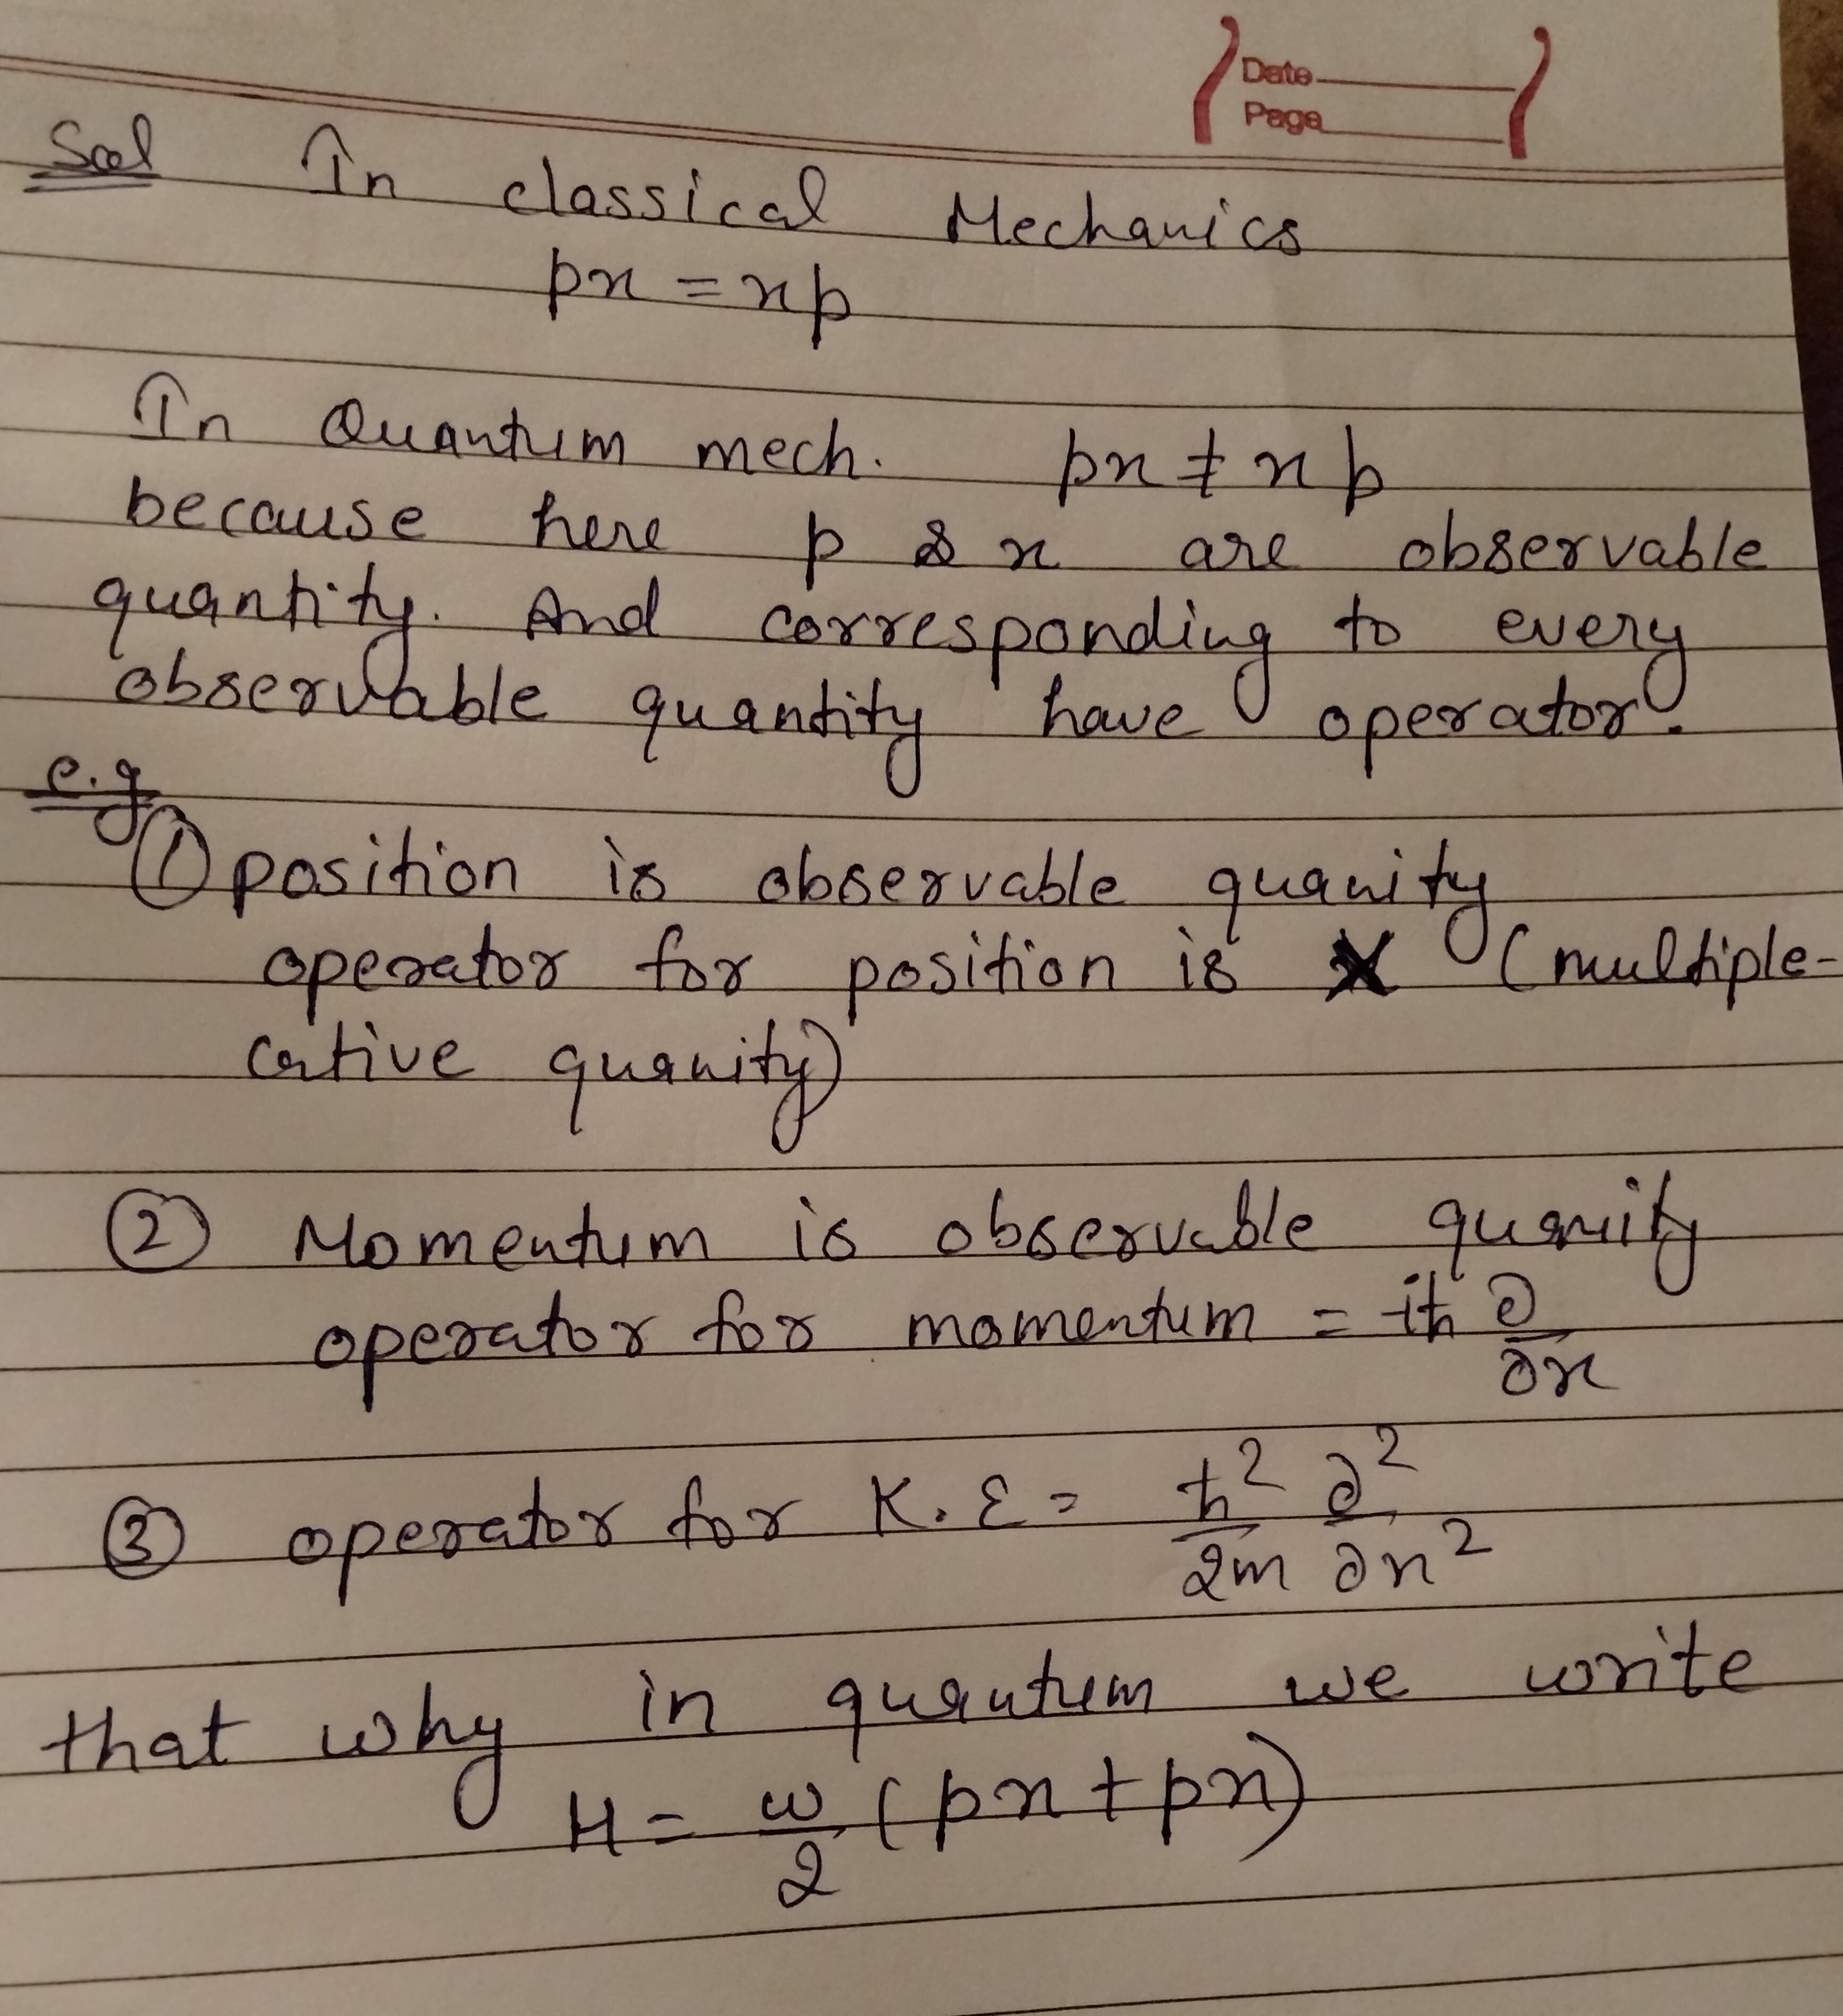 Date
Page
Sol In classical Mechanics
px = xp
In Quantum mech. px ≠ xp
because here p & x are observable
quantity. And corresponding to every
observable quantity have operator.
e.g
① position is observable quanity
operator for position is X (multiple-
cative quanity)
② Momentum is observable quanity
operator for momentum = iħ ∂/∂x
③ operator for K.E = ħ²/2m ∂²/∂x²
that why in quantum we write
H = ω/2 (px + px)